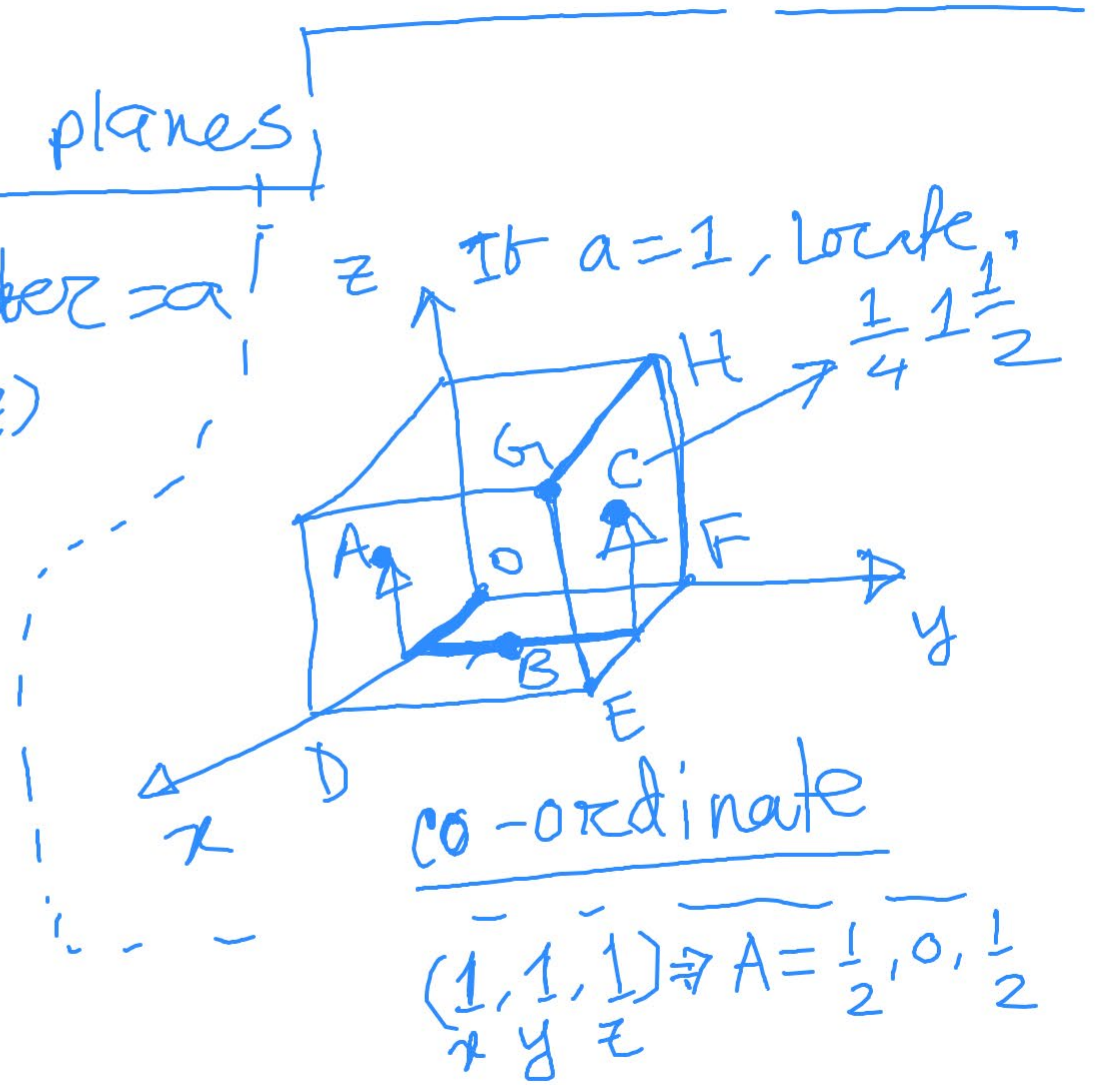 planes
= a
z If a = 1, Locate,
1/4 1 1/2
H
G
C
A
O
F
B
y
E
D
x
co-ordinate
(1, 1, 1) ⇒ A = 1/2, 0, 1/2
x y z